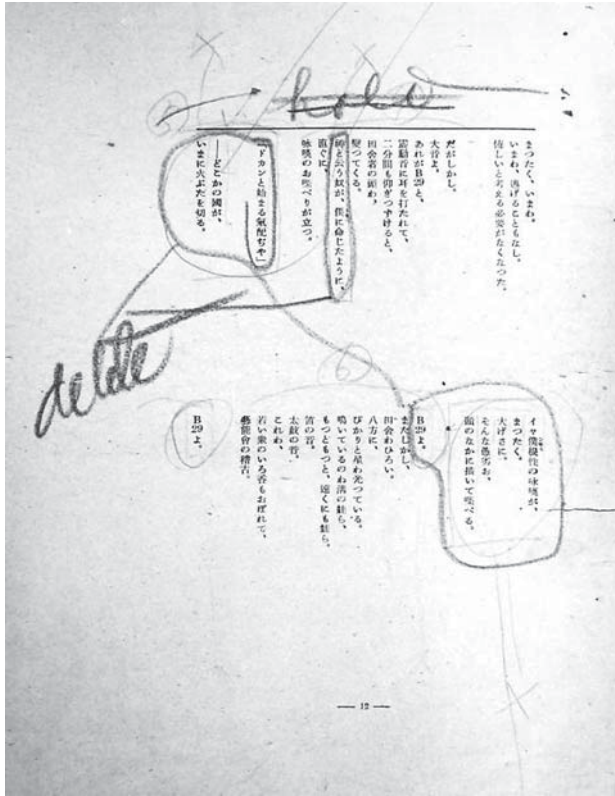 hold
まつたく、いまわ。
いまわ、逃げることもなし。
惜しいと考える必要がなくなつた。
だがしかし、
大音よ。
あれがB29と、
震動音に耳を打たれて、
二分間も仰ぎつずけると、
田舎者の頭わ、
堅つてくる。
神と云う奴が、僕に命じたように、
直ぐに、
咏嘆のお喋べりが立つ。
「ドカンと始まる氣配ぢや」
――どこかの國が、
いまに火ぶたを切る。
delete
5
6
イヤ僕根性の咏嘆が、
まつたく、
大げさに、
そんな愚劣お、
頭のなかに描いて喋べる。
B29よ。
またしかし、
田舎わひろい。
八方に、
ぴかりと星わ光つている。
鳴いているのわ溝の蛙ら、
もつともつと、遠くにも蛙ら。
笛の音。
太鼓の音。
これわ、
若い衆のいろ香もおぼれて、
藝能會の稽古。
B29よ。
― 12 ―